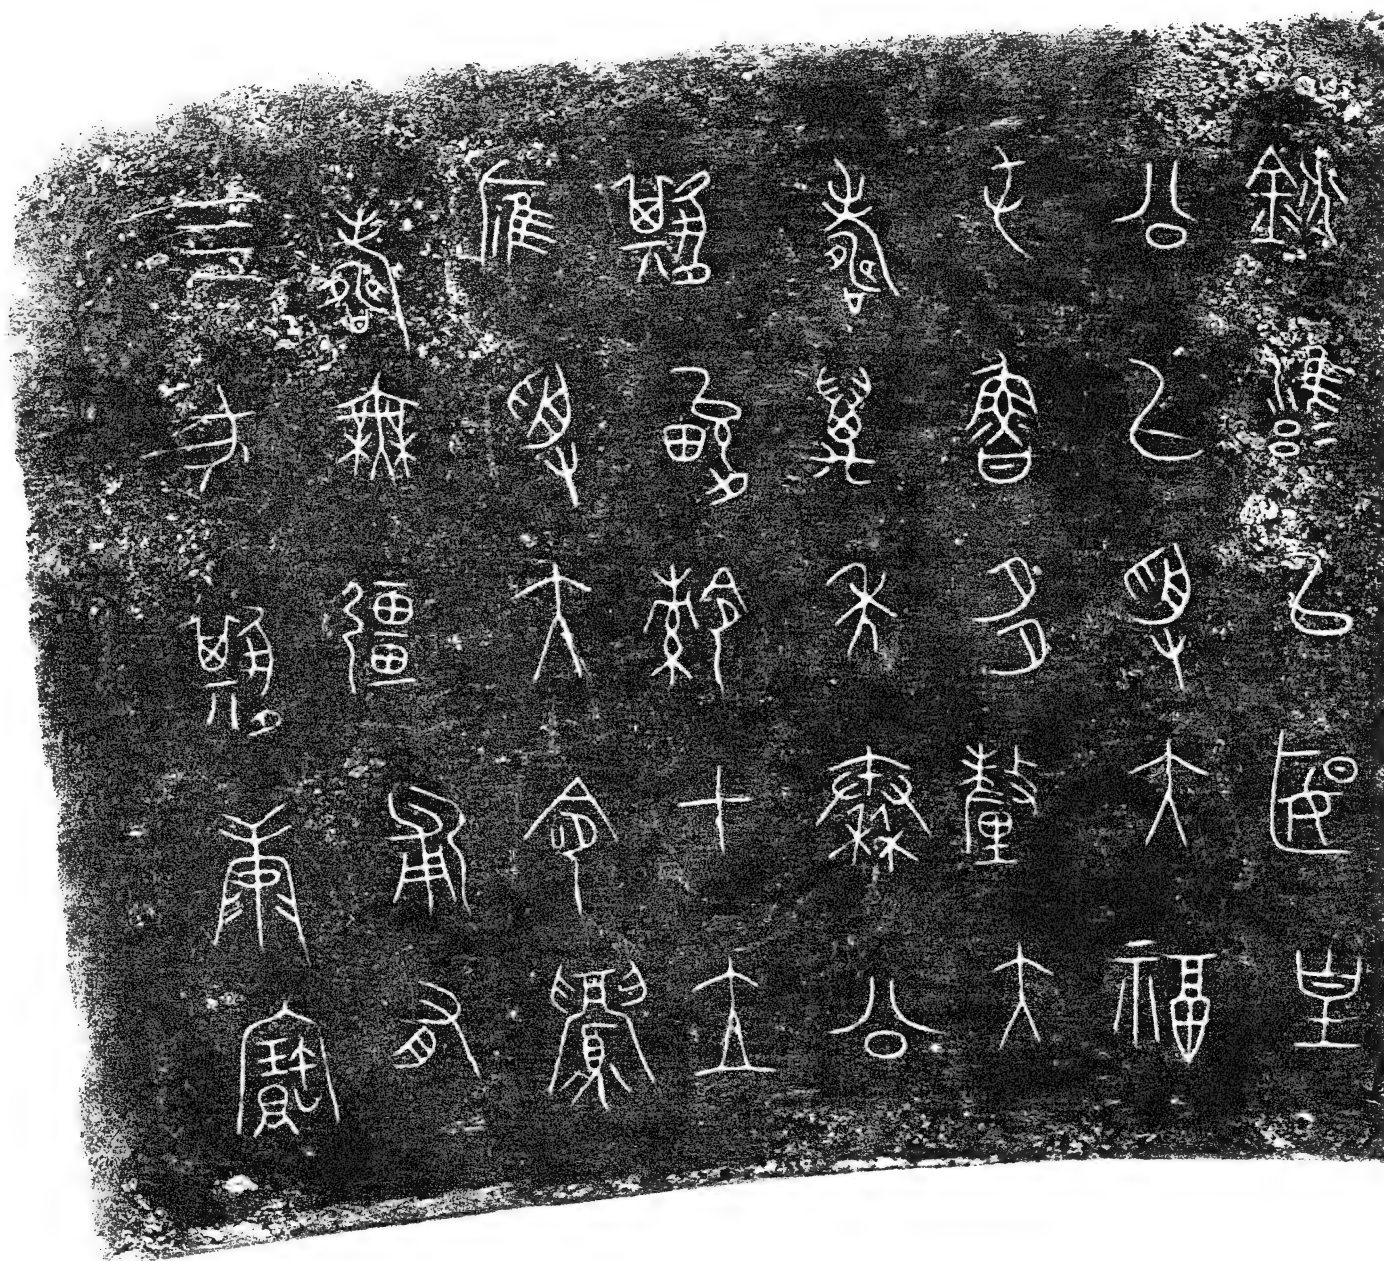 銑雝㠯匽皇
公㠯受大福
屯魯多釐大
壽萬年秦公
㠱畯𬯎才立
雁受大令眉
壽無彊匍有
亖方㠱康寶